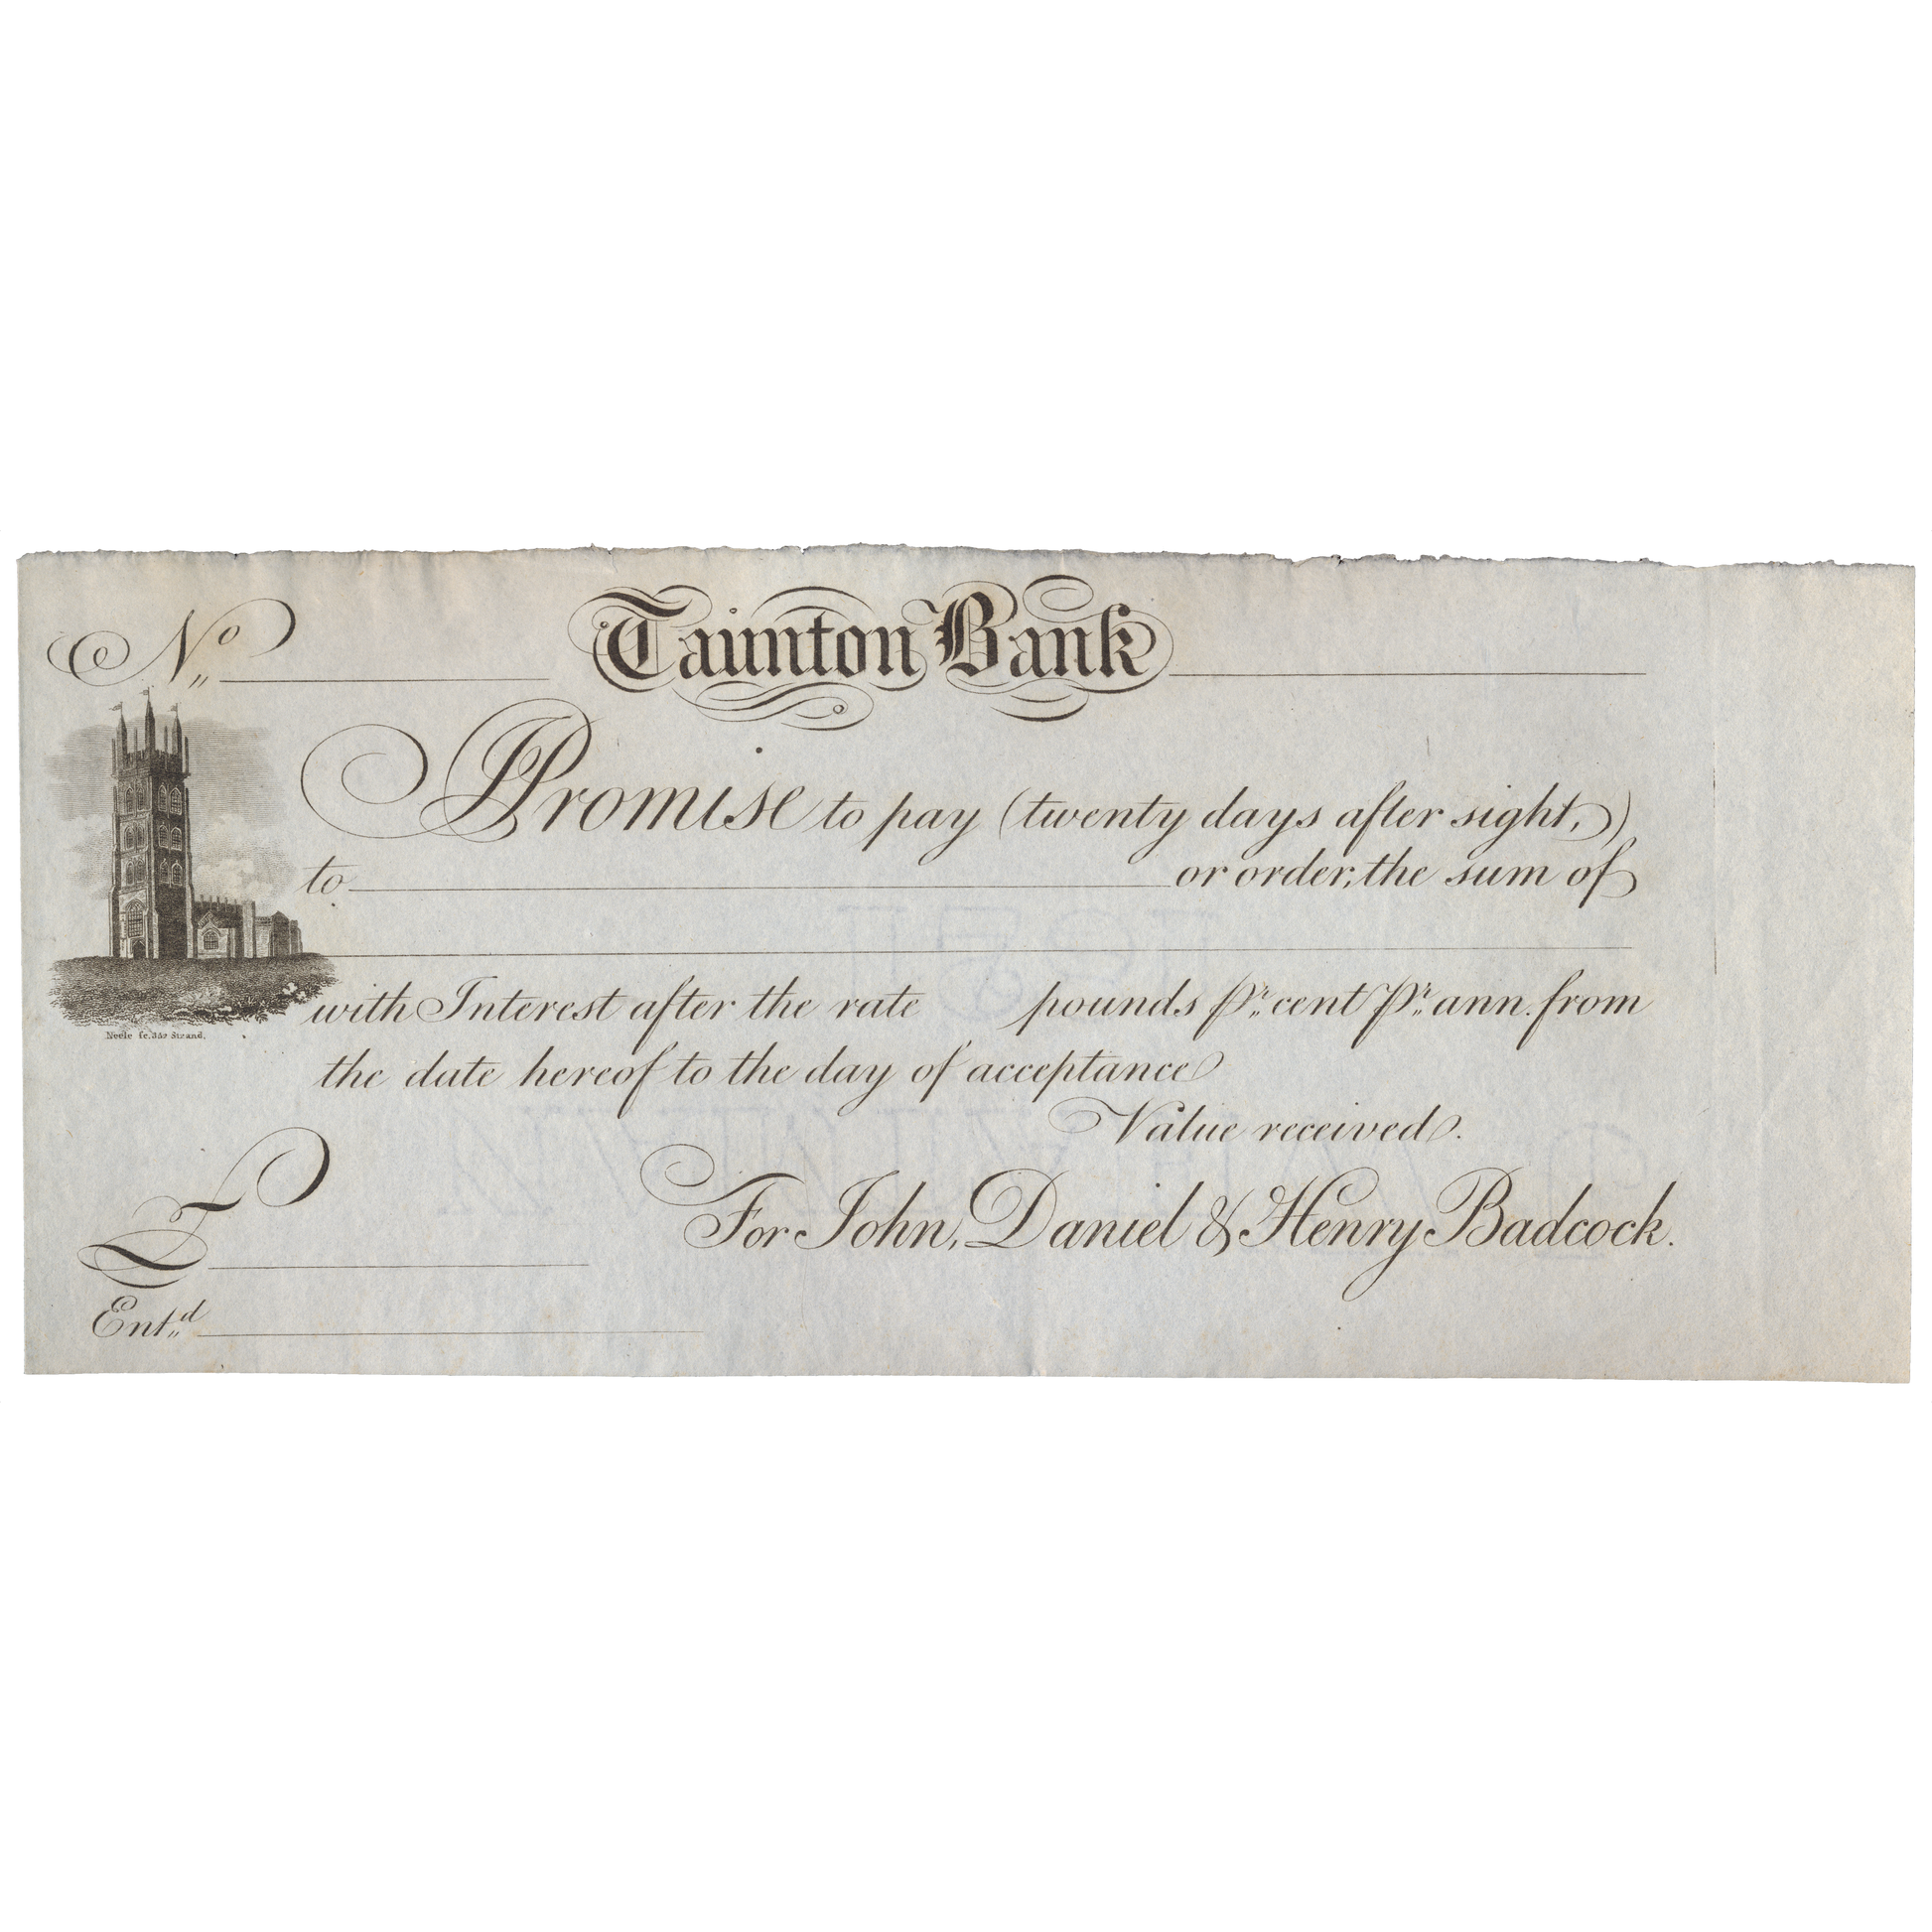 No
Taunton Bank
I Promise to pay (twenty days after sight,)
to or order, the sum of
with Interest after the rate pounds Pr. cent Pr. ann. from
Neele fc. 352 Strand.
the date hereof to the day of acceptance
Value received.
£
For John, Daniel & Henry Badcock.
Entd